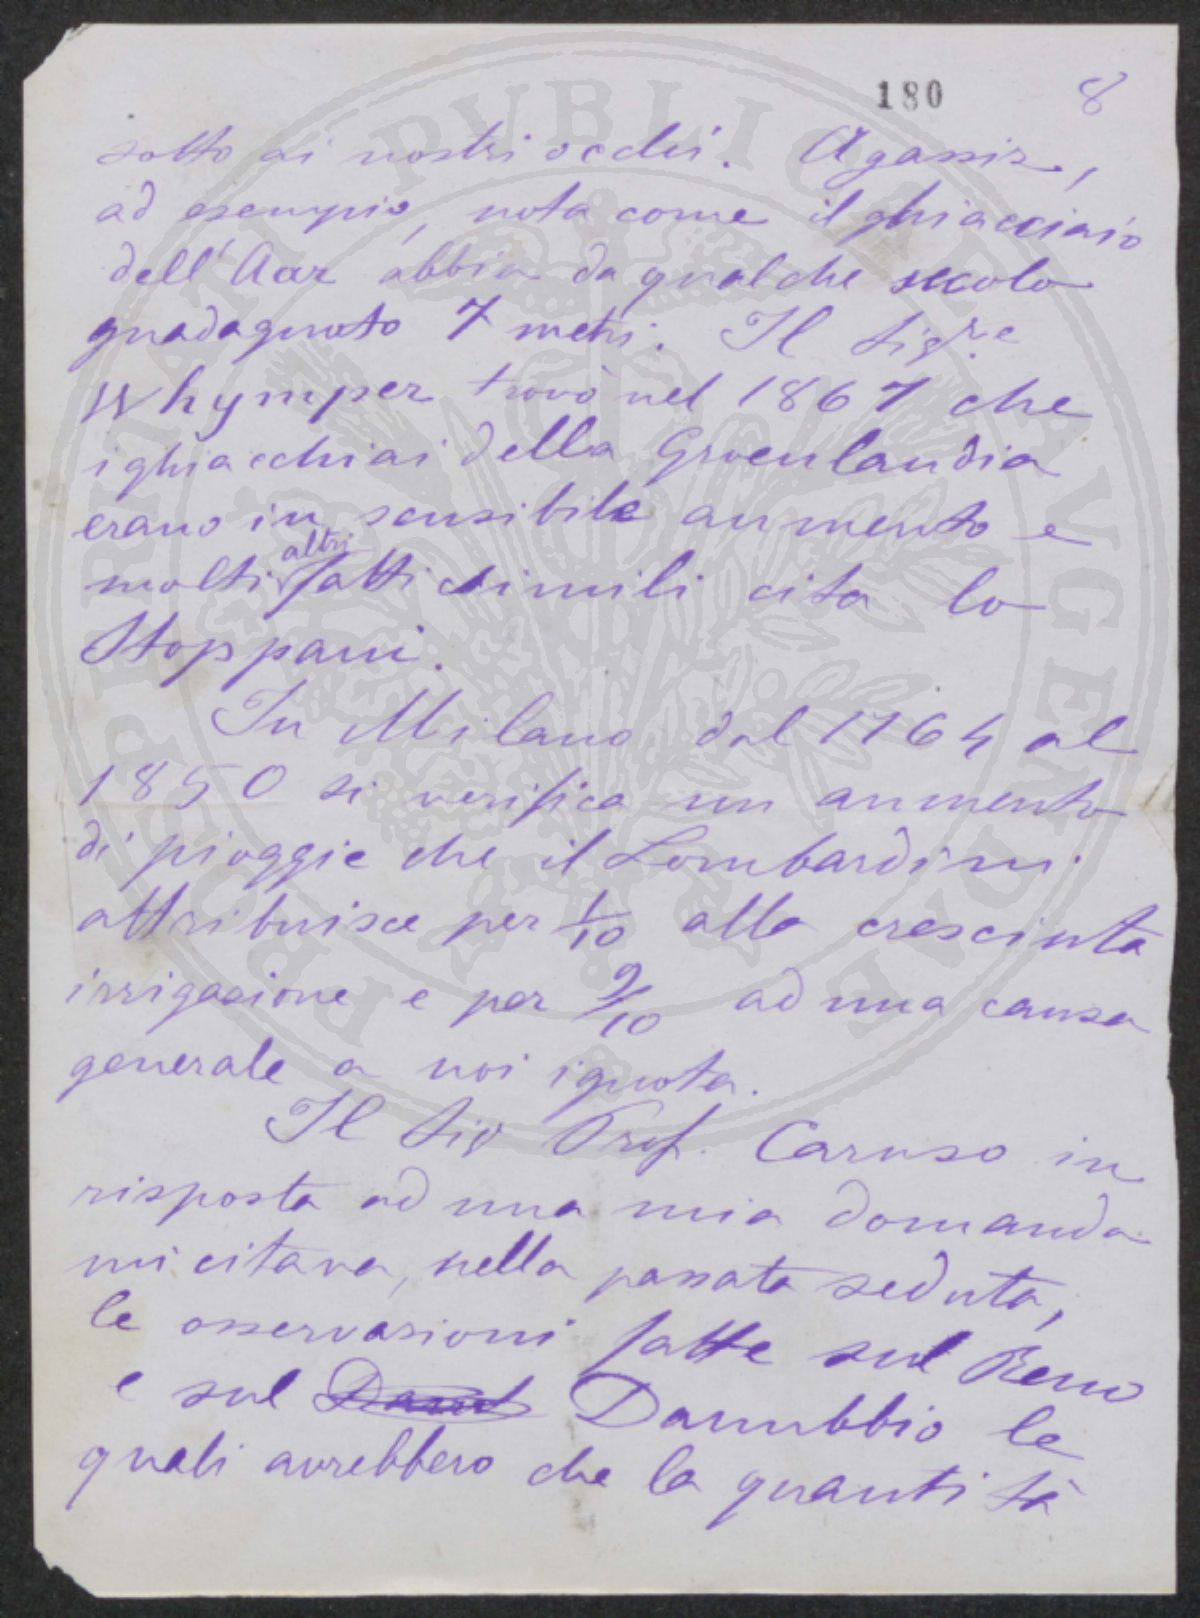 180 8
sotto ai nostri occhi. Agassiz,
ad esempio, nota come il ghiacciaio
dell'Aar abbia da qualche secolo
guadagnato 7 metri. Il Sigr.e
Whymper trovò nel 1867 che
i ghiacchiai della Groenlandia
erano in sensibile aumento e
altri
molti fatti simili cita lo
Stoppani.
In Milano dal 1764 al
1850 si verifica un aumento
di pioggie che il Lombardini
attribuisce per 1/10 alla cresciuta
irrigazione e per 9/10 ad una causa
generale a noi ignota.
Il Sig Prof. Caruso in
risposta ad una mia domanda
mi citava, nella passata seduta,
le osservazioni fatte sul Reno
e sul Danubbio le
quali avrebbero che la quantità